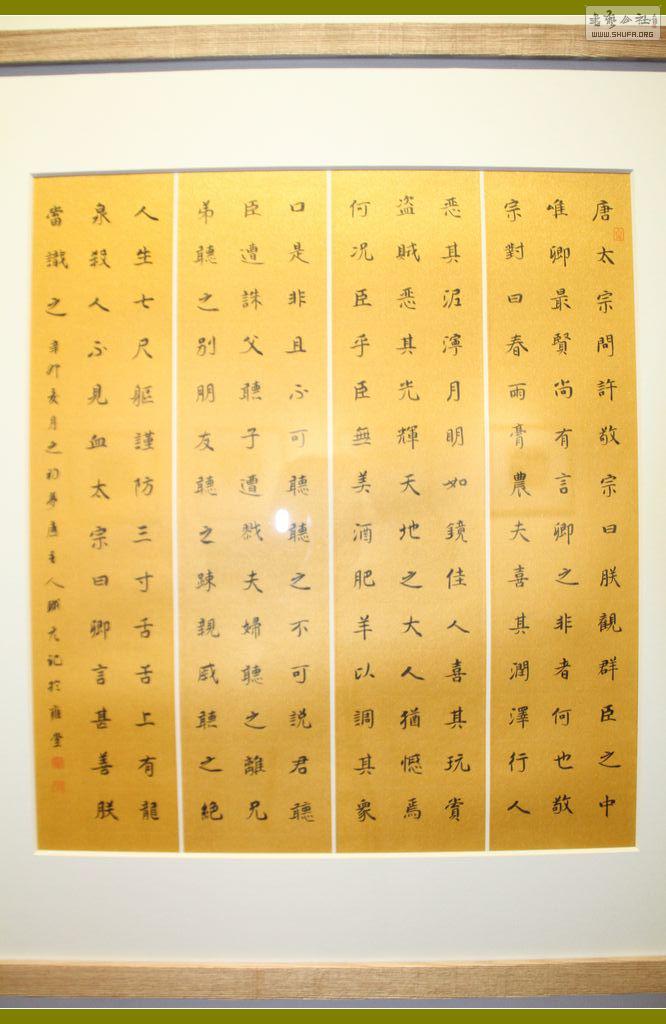 唐太宗問許敬宗曰朕觀群臣之中
唯卿最賢尚有言卿之非者何也敬
宗對曰春雨膏農夫喜其潤澤行人
惡其泥濘月明如鏡佳人喜其玩賞
盜賊惡其光輝天地之大人猶憾焉
何況臣乎臣無美酒肥羊以調其衆
口是非且不可聽聽之不可説君聽
臣遭誅父聽子遭戮夫婦聽之離兄
弟聽之別朋友聽之疎親戚聽之絕
人生七尺軀謹防三寸舌舌上有龍
泉殺人不見血太宗曰卿言甚善朕
當識之
辛卯亥月之初夢唐主人賦文記於雍堂
WWW.SHUFA.ORG